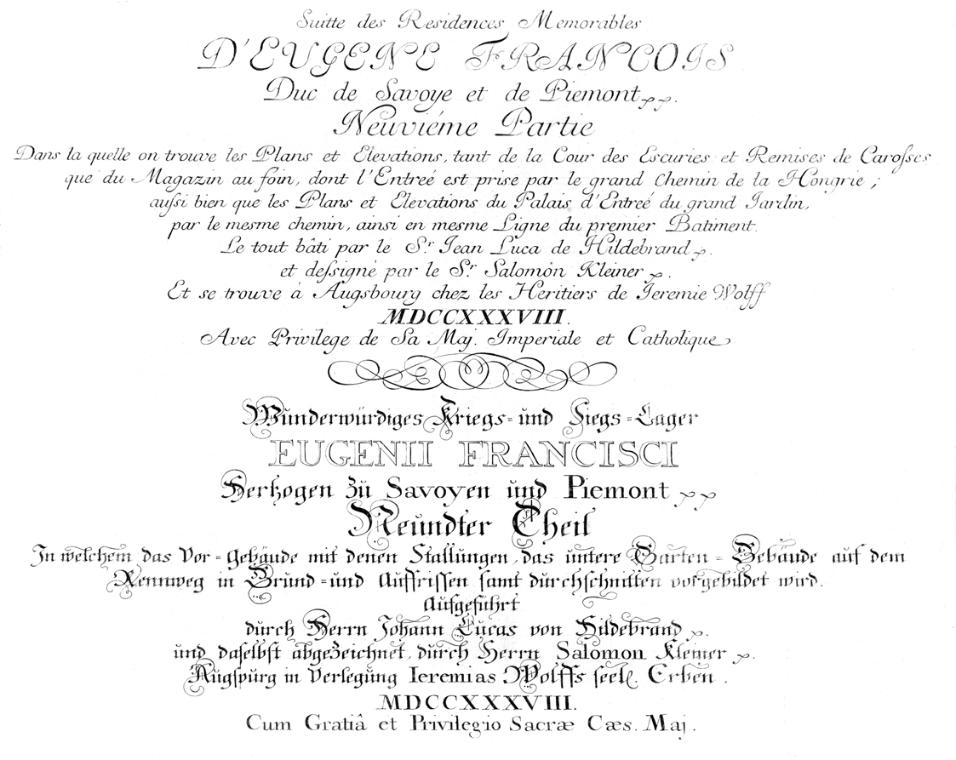 Suitte des Residences Memorables
D'EUGENE FRANCOIS
Duc de Savoye et de Piemont
Neuviéme Partie
Dans la quelle on trouve les Plans et Elevations, tant de la Cour des Escuries et Remises de Carosses
que du Magazin au foin, dont l'Entreé est prise par le grand Chemin de la Hongrie ;
aussi bien que les Plans et Elevations du Palais d'Entreé du grand Jardin,
par le mesme chemin, ainsi en mesme Ligne du premier Batiment.
Le tout bâti par le Sr. Jean Luca de Hildebrand.
et dessigné par le Sr. Salomon Kleiner.
Et se trouve à Augsbourg chez les Heritiers de Jeremie Wolff
MDCCXXXVIII.
Avec Privilege de Sa Maj. Imperiale et Catholique
Wunderwürdiges Kriegs- und Siegs-Lager
EUGENII FRANCISCI
Hertzogen zu Savoyen und Piemont
Neundter Theil
In welchem das Vor-Gebäude mit denen Stallungen, das untere Garten-Gebäude auf dem
Rennweg in Grund- und Auffrissen samt durchschnitten vorgebildet wird.
Aufgeführt
durch Herrn Johann Lucas von Hildebrand.
und daselbst abgezeichnet durch Herrn Salomon Kleiner.
Augspurg in Verlegung Ieremias Wolffs seel. Erben.
MDCCXXXVIII.
Cum Gratiâ et Privilegio Sacræ Cæs. Maj.